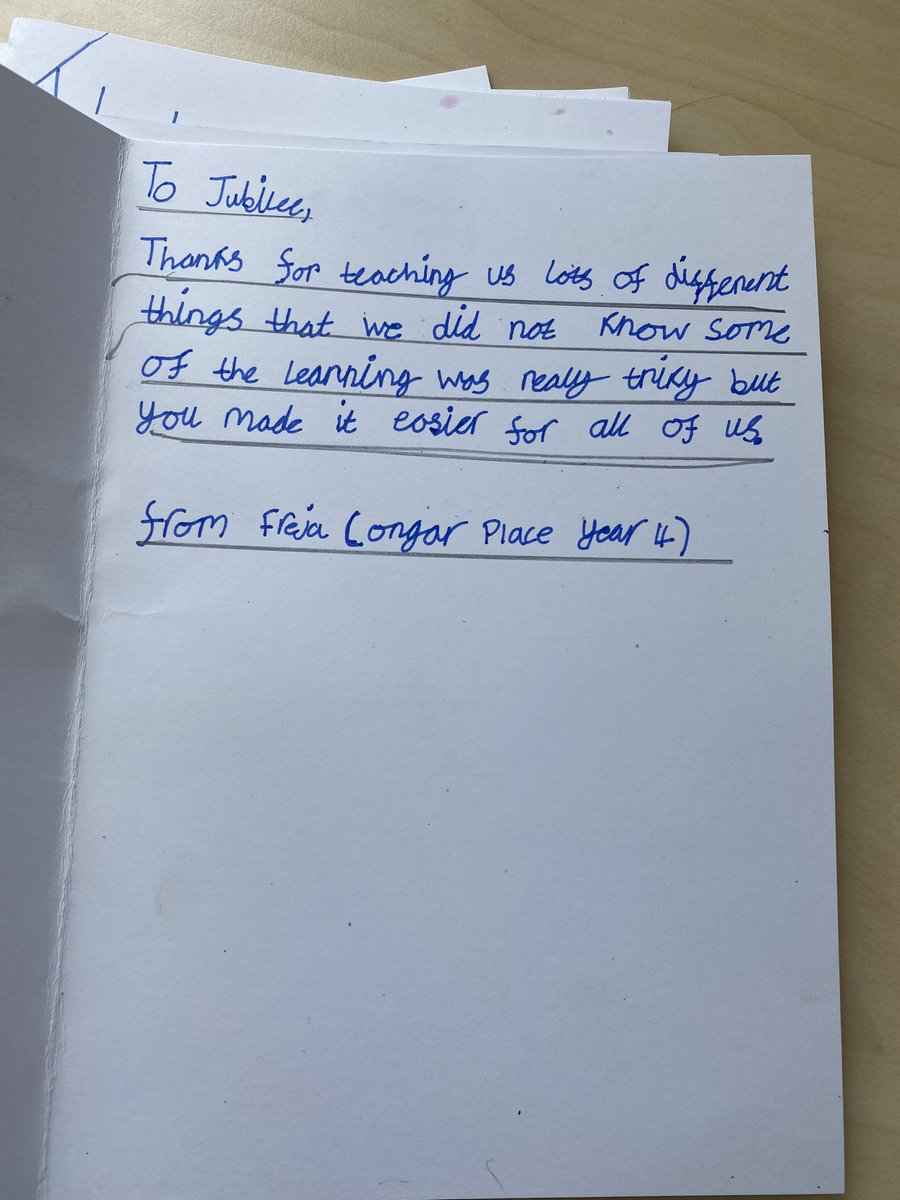 To Jubilee,
Thanks for teaching us lots of different
things that we did not know some
of the learning was realy triky but
you made it easier for all of us.
from Freja (Ongar Place Year 4)